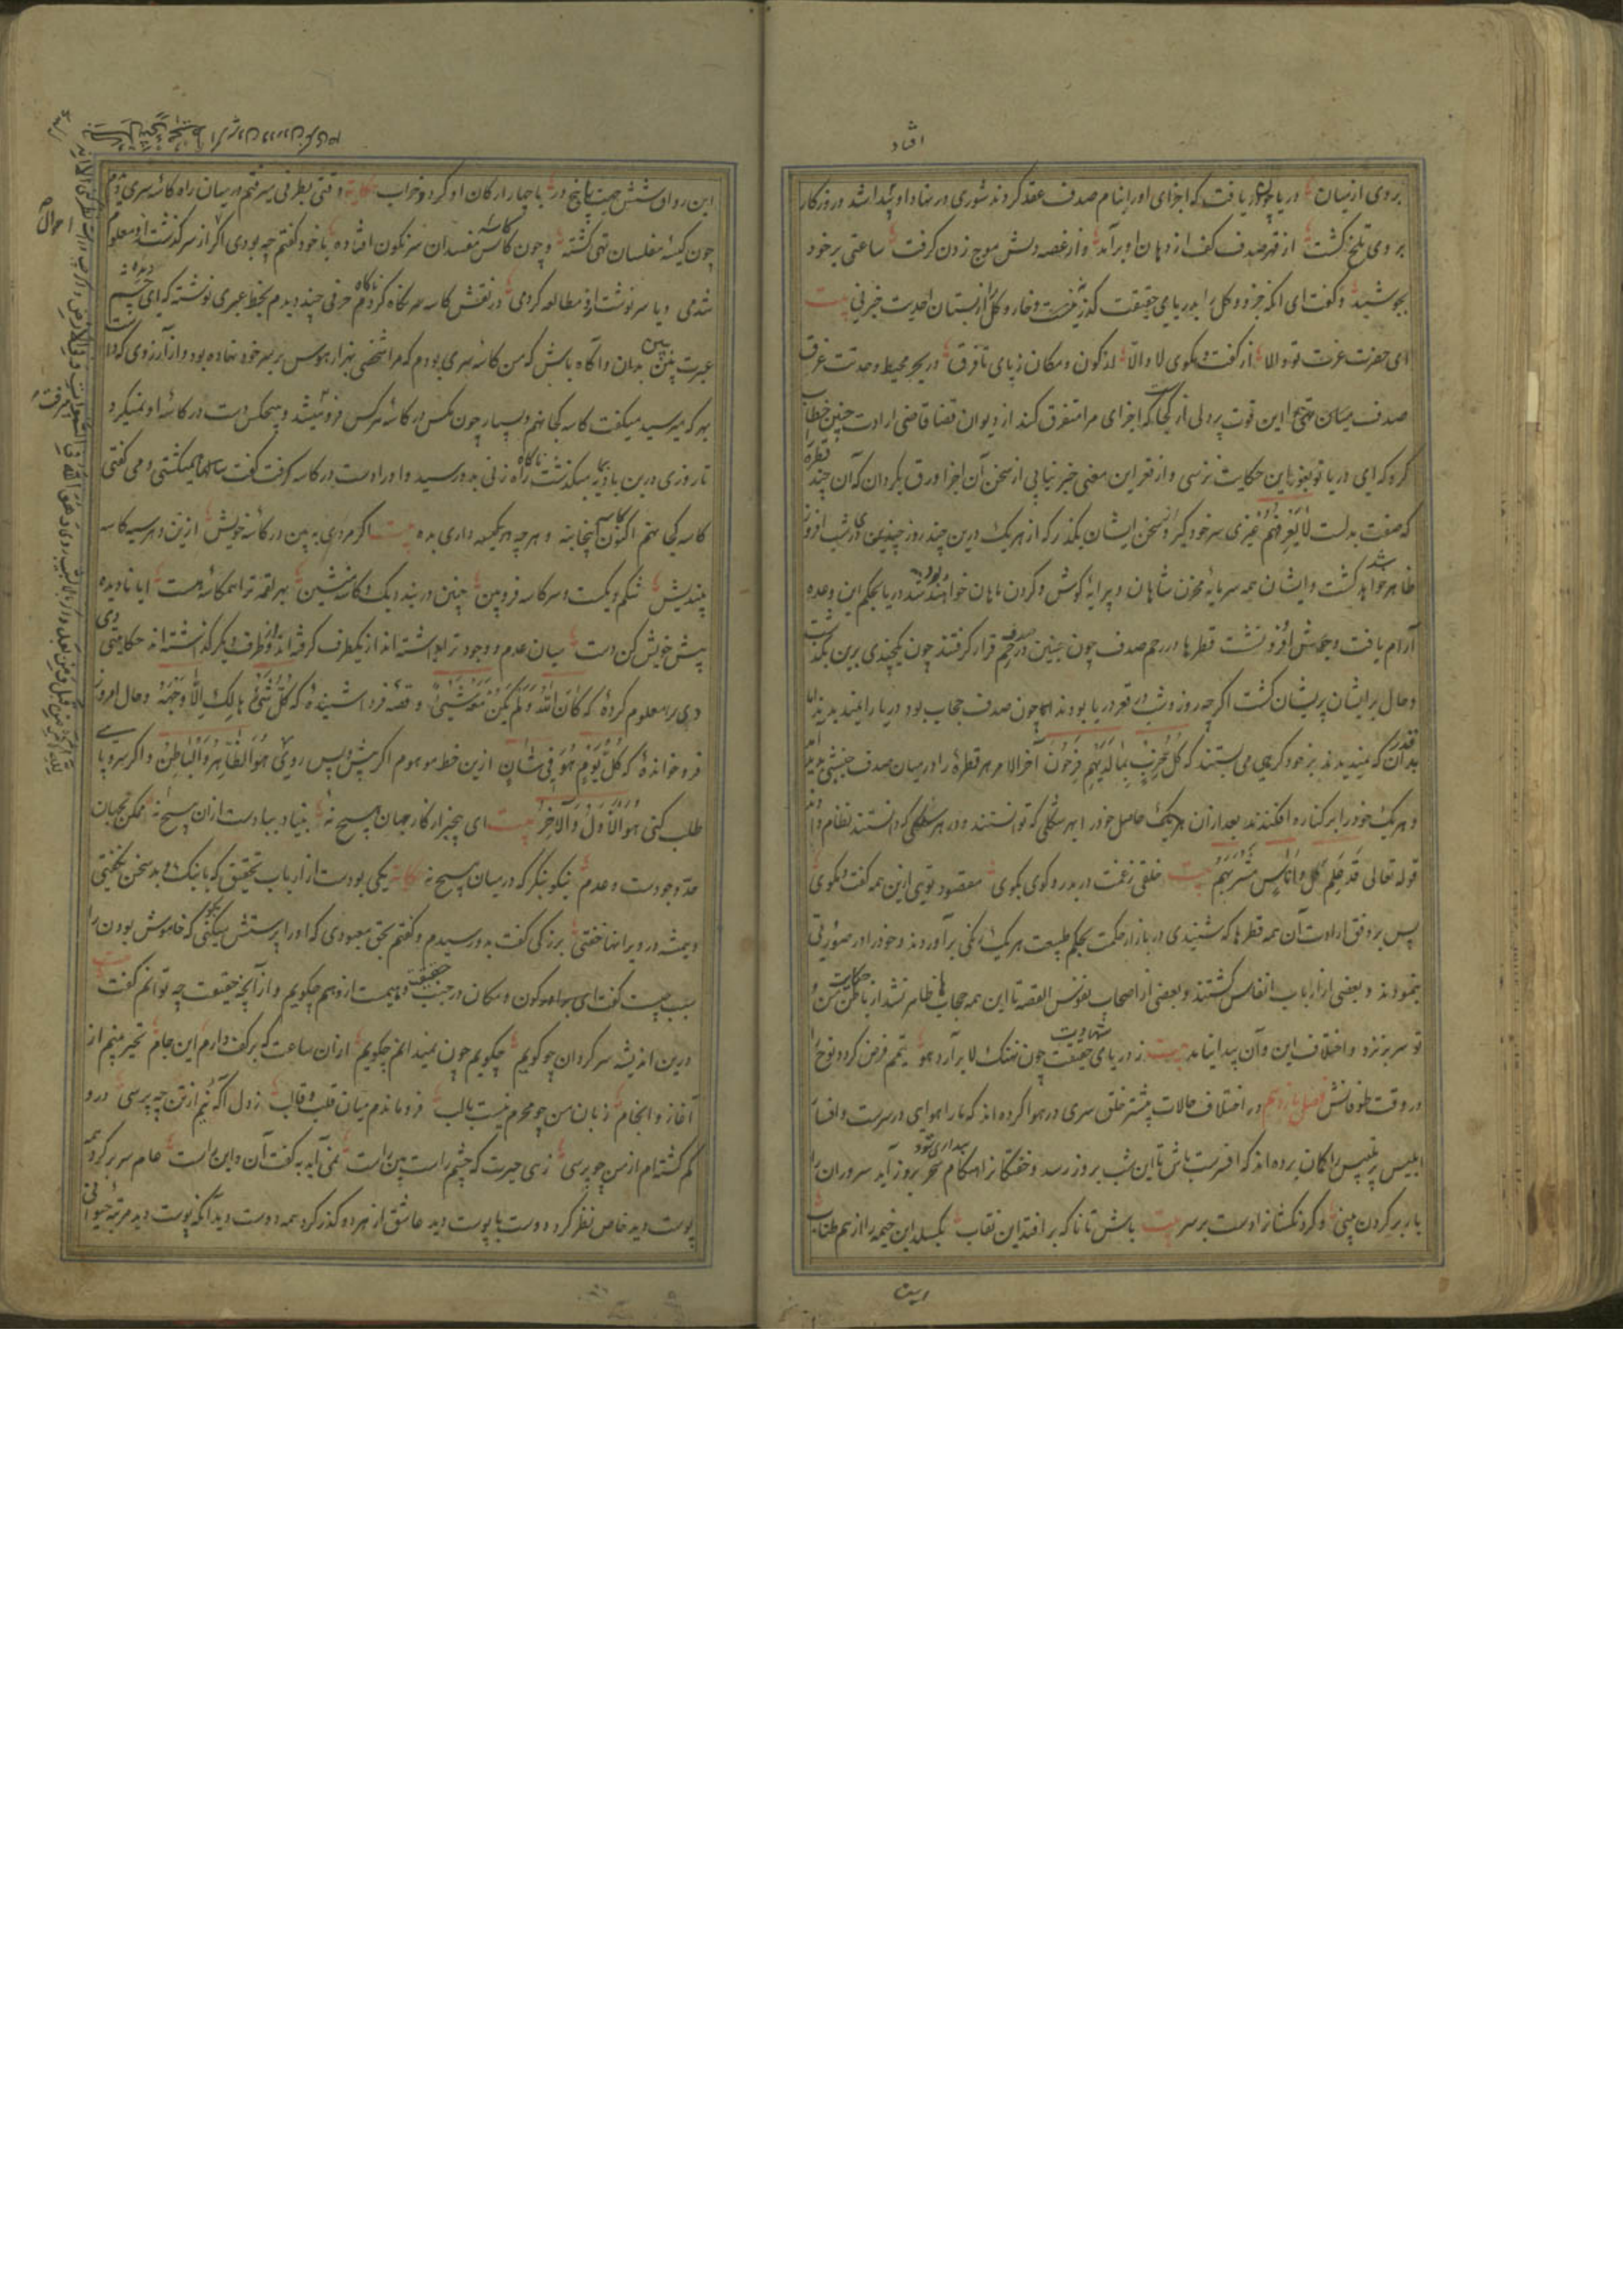 افتاد
بروی از نیسان دریا چون دریافت که اجزای او را بنام صدف عقد کردند شوری در نهاد او پیدا شد و روزگار
بروی تلخ گشت از قهر صدف کف از دهان او برآمد و از غصه دلش موج زدن گرفت ساعتی بر خود
بجوشید و گفت ای آنکه جزو و کل را بدریای حقیقت گذر نیست و خار و گل را از بستان احدیت خبر نی بیت
ای حضرت عزت تو والا از گفت و گوی لا و الا از کون و مکان ز پای تا فرق در بحر محیط وحدتت غرق
صدف میان تهی را این قوت پر دلی از کجاست که اجزای مرا متفرق کند از دیوان قضا قاضی ارادت چنین خطاب
کرد که ای دریا تو بغور این حکایت نرسی و از قعر این معنی خبر نیابی از سخن آن اجزا ورق بگردان که آن چند قطره
که صفت بدلت لا یعرفهم غیری سر خود گیر و از سخن ایشان بگذر که از هر یک درین چند روز چندین در شب افروز
ظاهر خواهد شد و ایشان همه سرمایه مخزن شاهان و پیرایه گوش و گردن ماهان خواهند بود دریا بحکم این وعده
آرام یافت و جوشش فرو نشست قطرها در رحم صدف چون جنین در رحم قرار گرفتند چون یکچندی برین بگذشت
و حال بر ایشان پریشان گشت اگر چه روز و شب در قعر دریا بودند اما چون صدف حجاب بود دریا را نمیدیدند اما
بدان قدر که نمیدیدند بر خود کرمی می بستند که کل حزب بما لدیهم فرحون آخر الامر هر قطره را در میان صدف جنبشی
و هر یک خود را بر کناره افکندند بعد از آن هر یک حاصل خود را بهر شکلی که توانستند و در هر سلکی که دانستند نظام دادند
قوله تعالی قد علم کل اناس مشربهم بیت خلقی ز غمت در بدر و کوی بکوی مقصود تویی ازین همه گفت و گوی
پس بر وفق ارادت آن همه قطرها که شنیدی در بازار حکمت بحکم طبیعت هر یک رنگی برآوردند و خود را در صورتی
بنمودند و بعضی از ارباب انفاس گشتند و بعضی از اصحاب نفوس القصه تا این همه حجاب ها ظاهر نشد از باطن من حکایت
تو سر نزند و اختلاف این و آن پیدا نیاید بیت ز دریای شهادت چون نهنگ لا برآرد هو تیمم فرض گردد نوح را
در وقت طوفانش فصل یازدهم در اختلاف حالات بیشتر خلق سری در هوا کرده اند که ما را هوای در سرست و افسار
ابلیس پر تلبیس را گمان برده اند که افسرست باش تا این شب بروز رسد و خفتگان را هنگام بیداری شود سروران را
بار بر گردن بینی و گردنکشان را دست بر سر بیت باش تا ناگه بر افتد این نقاب بگسلد این خیمه را از هم طناب
این رواق شش جهت پا پنج در با چهار ارکان او گردد خراب حکایت وقتی بطرفی میرفتم در میان راه کاسه سری دیدم
چون کیسه مفلسان تهی گشته و چون کاسه مفسدان سرنگون افتاده با خود گفتم چه بودی اگر از سرگذشت او معلوم
شدمی و یا سرنوشت او مطالعه کردمی در نقش کاسه سر نگاه کردم حرفی چند دیدم بخط عبری نوشته که ای
عبرت بین بدان و آگاه باش که من کاسه سری بودم که مرا شخصی بهزار هوس بر سر خود نهاده بود و از آرزوی
بهر که میرسید میگفت کاسه کجا نهم و بسیار چون مگس در کاسه هر کس فرو میشد و هیچکس دست در کاسه او نمیکرد
تا روزی درین بادیه میگذشت ناگاه رهزنی بدو رسید و او را دست در کاسه گرفت گفت سالها میگشتی و می گفتی
کاسه کجا نهم اکنون کاسه اینجا بنه و هر چه در کیسه داری بده بیت اگر مردی به بین در کاسه خویش ازین در هر سیه کاسه
بیندیش شکم دیگست و سر کاسه فرو بین چنین در بند دیگ و کاسه منشین بهر لقمه ترا همکاسه هست ایا نادیده
پیش خویش کن دست میان عدم و وجود ترا بداشته اند از یکطرف گرفته اند و از طرف دیگر گذاشته اند حکایتی
دی را معلوم کرده که کان الله و لم یکن معه شیئ و قصه فردا شنیده که کل شیئ هالک الا وجهه و حال امروز
فرو خوانده که کل یوم هو فی شان ازین خط موهوم اگر پیش و پس روی هو الظاهر و الباطن و اگر سر و پا
طلب کنی هو الاول و الاخر بیت ای بیخبر از کار جهان هیچ نه بنیاد ببادست از آن هیچ نه ممکن بجهان
حد وجودست و عدم نیکو بنگر که در میان هیچ نه حکایت یکی بودست از ارباب تحقیق که با نیک و بد سخن نگفتی
و همیشه در ویرانها خفتی بزرگی گفت بدو رسیدم و گفتم بحق معبودی که او را پرستش میکنی بگو که خاموش بودن را
سبب چیست گفت ای برادر کون و مکان در جنب حقیقت وهمیست از وهم چگویم و از آنچه حقیقت چه توانم گفت بیت
درین اندیشه سرگردان چو گویم چگویم چون نمیدانم چگویم از آن ساعت که بر کف دارم این جام تحیر میبرم از
آغاز و انجام زبان من چو محرم نیست با لب فرو ماندم میان قلب و قالب ز دل آگه نیم از تن چه پرسی درو
گم گشته ام از من چو پرسی زهی حیرت که چشم راست بین راست نمی آید به گفت آن و این راست عام سر بر کرد همه
پوست دید خاص نظر کرد دوست با پوست دید عاشق از هر دو گذر کرد همه دوست دید آنکه پوست دید مرتبه حیوانی